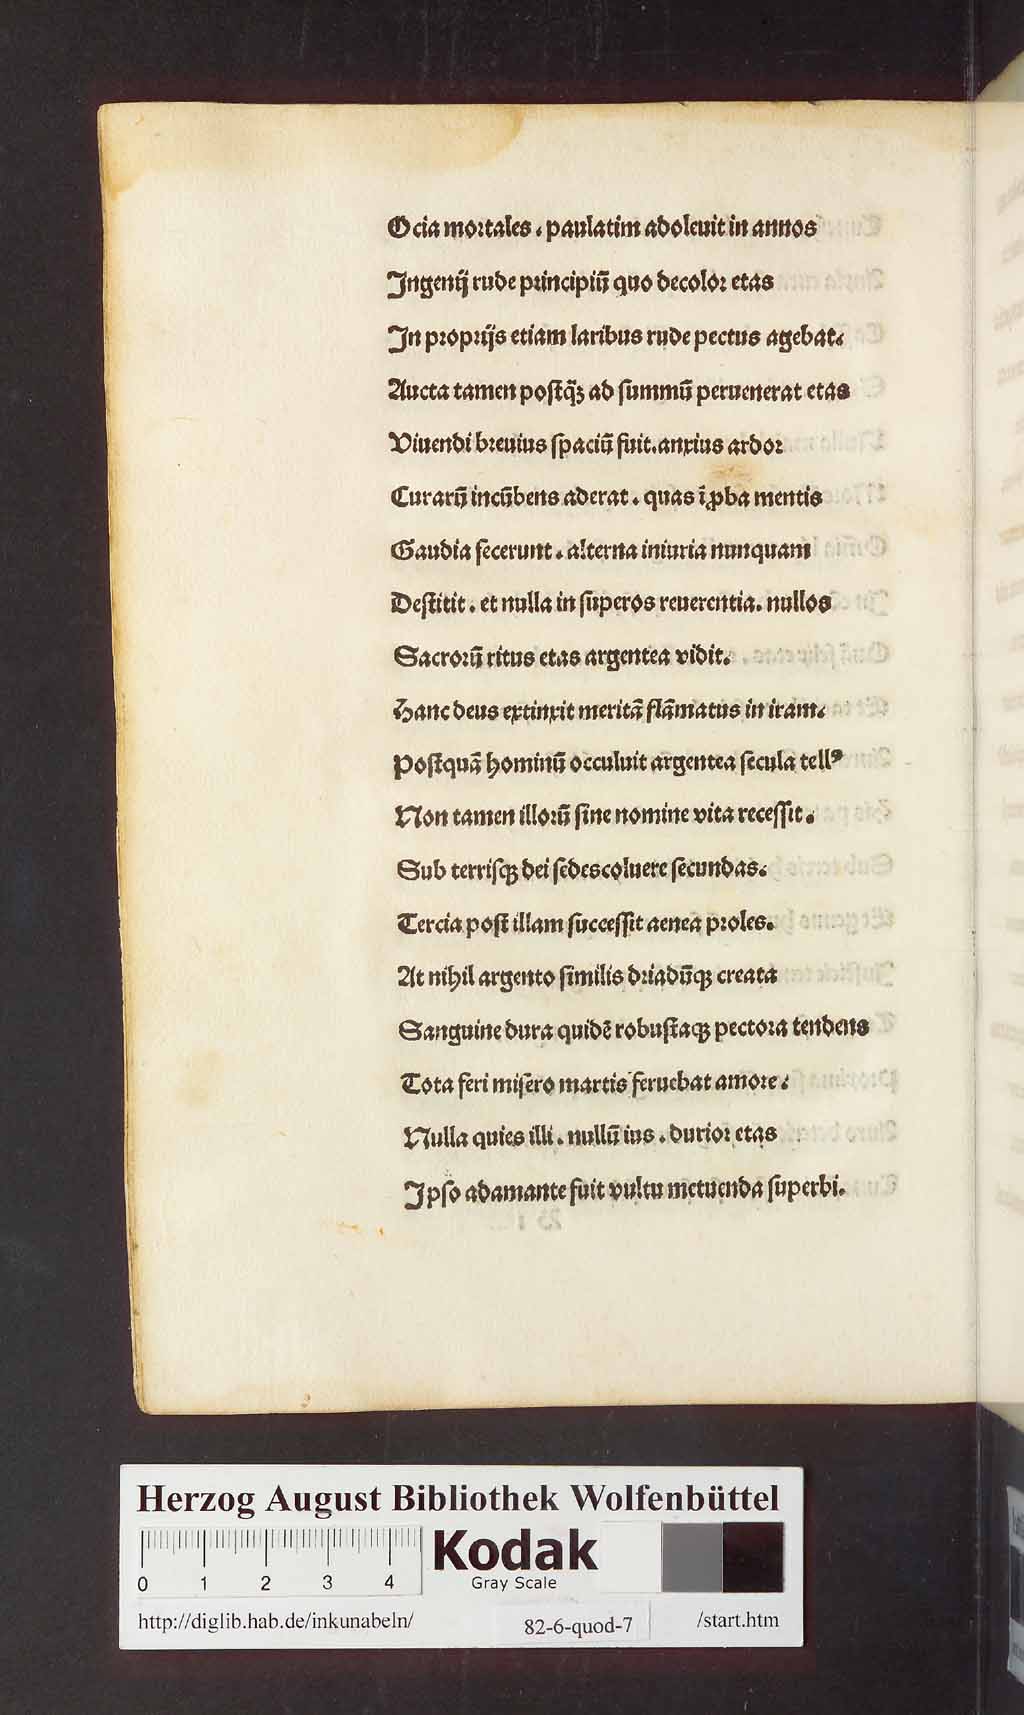 Ocia mortales. paulatim adoleuit in annos
Ingenij rude principiū quo decolor etas
In proprijs etiam laribus rude pectus agebat.
Aucta tamen postq̃ꝫ ad summū peruenerat etas
Viuendi breuius spaciū fuit. anxius ardor
Curarū incūbens aderat. quas īꝓba mentis
Gaudia fecerunt. alterna iniuria nunquam
Destitit. et nulla in superos reuerentia. nullos
Sacrorū ritus etas argentea vidit.
Hanc deus extinxit meritā flāmatus in iram.
Postquā hominū occuluit argentea secula tellꝰ
Non tamen illorū sine nomine vita recessit.
Sub terrisqꝫ dei sedes coluere secundas.
Tercia post illam successit aenea proles.
At nihil argento similis driadūqꝫ creata
Sanguine dura quidē robustaqꝫ pectora tendens
Tota feri misero martis feruebat amore.
Nulla quies illi. nullū ius. durior etas
Ipso adamante fuit vultu metuenda superbi.
Herzog August Bibliothek Wolfenbüttel
0 1 2 3 4
Kodak
Gray Scale
http://diglib.hab.de/inkunabeln/ 82-6-quod-7 /start.htm